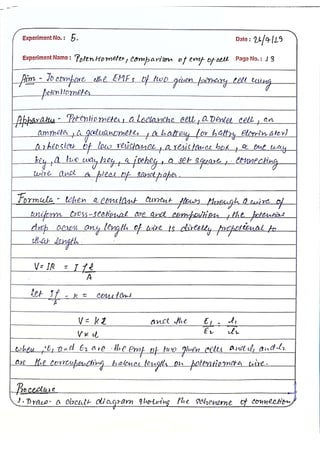 Experiment No. : 5. Date : 26/7/23
Experiment Name : Potentiometer, comparison of emf of cell Page No. : 13
Aim - To compare the EMFs of two given primary cell using
potentiometer
Apparatus - Potentiometer, a Leclanche cell, a Daniel cell, an
ammeter, a galvanometer, a battery (or battery eliminator)
a rheostat of low resistance, a resistance box, a one way
key, a two way key, a jockey, a set square, connecting
wire and a piece of sand paper.
Formula - When a constant current flows through a wire of
uniform cross-sectional are and composition, the potential
drop across any length of wire is directly propotional to
that length
V = IR = I ρ l
A
Let Iρ - K = constant
V = Kl and the E₁ - l₁
V ∝ l E₂ l₂
when, E₁ and E₂ are the emf of two given cells and l₁ and l₂
are the corresponding balance length on potentiometer wire.
Procedure
1. Draw a circuit diagram showing the scheme of connection